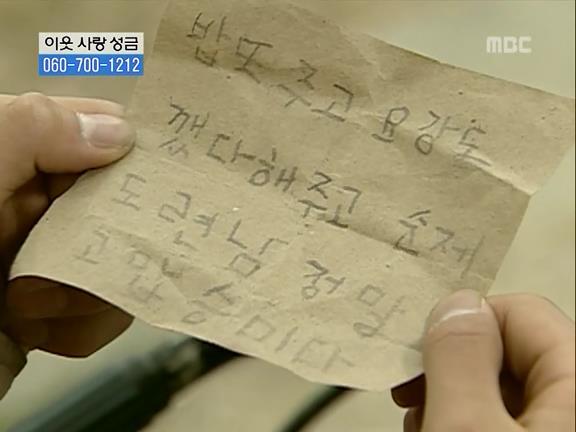 이웃 사랑 성금
060-700-1212
MBC
밥또 주고 요강도
깼다해 주고 순제
도련님 정말
고맙씀미다